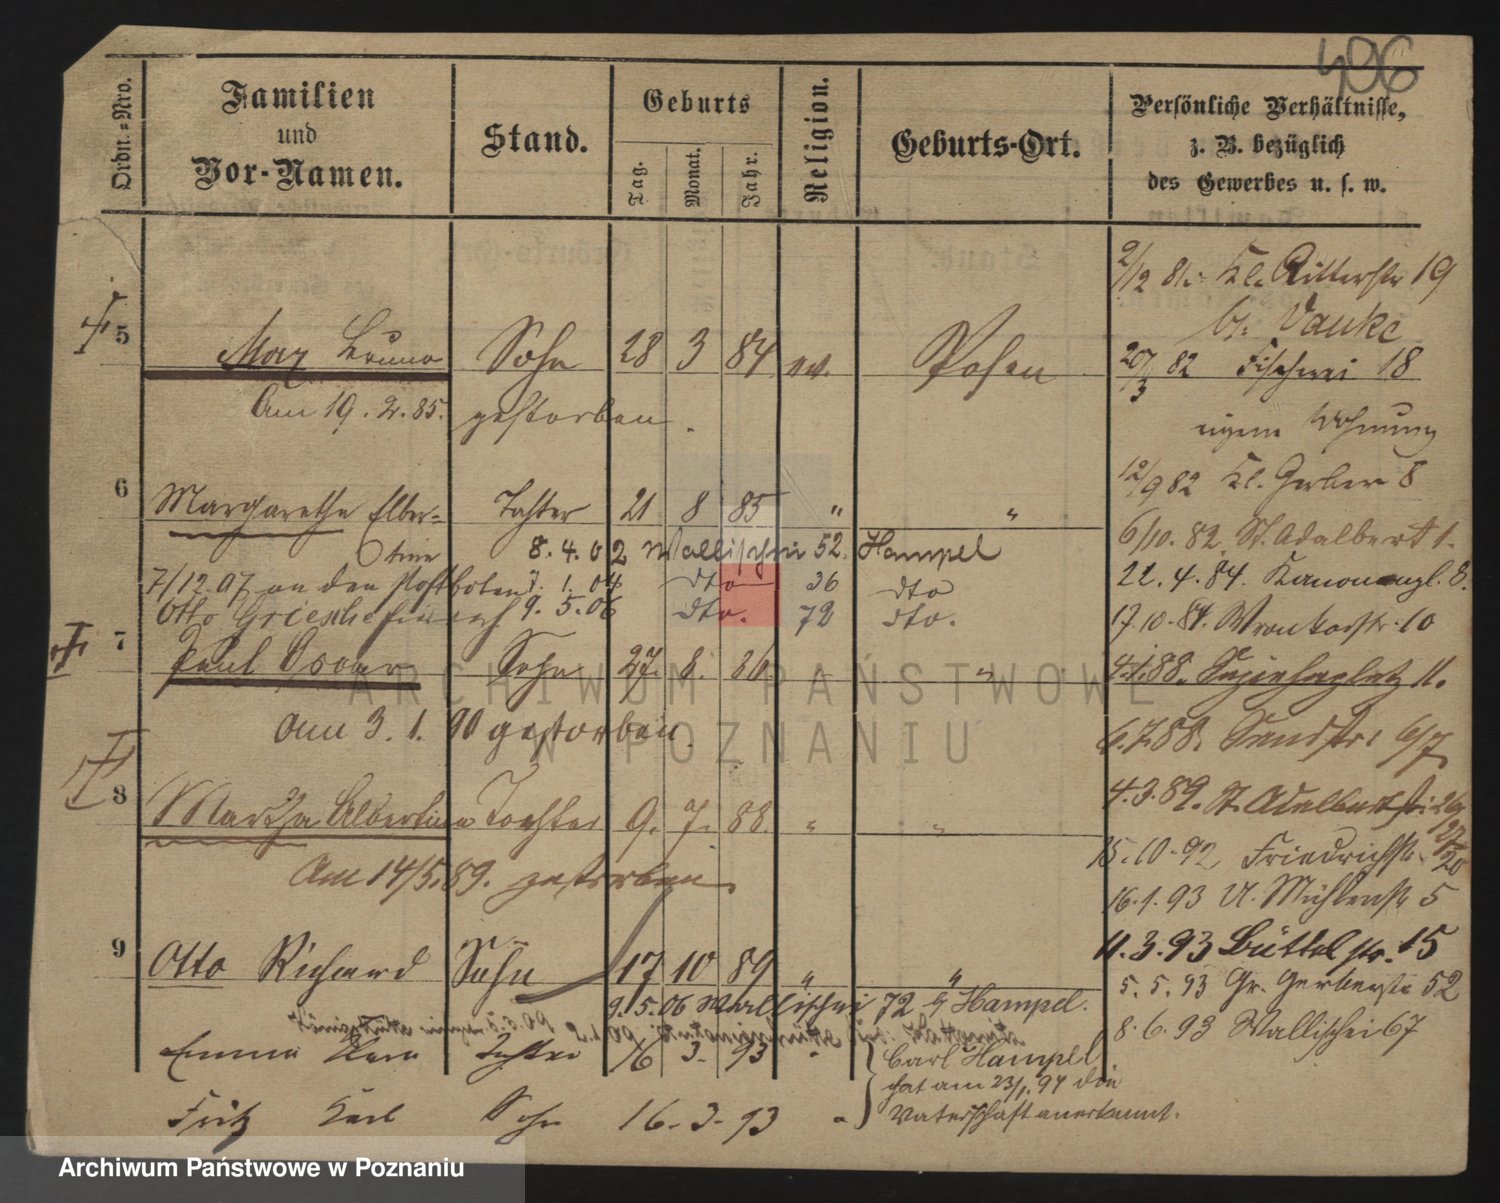 406
Ordn.=Nro.
Familien
und
Vor-Namen.
Stand.
Geburts
Tag.
Monat.
Jahr.
Religion.
Geburts-Ort.
Persönliche Verhältnisse,
z. B. bezüglich
des Gewerbes u. s. w.
2/12 81. Kl. Ritterstr 19
b/.
5 Max Bruno Sohn 28 3 84 ev. Posen
20/3 82 Fischerei 18
Am 19. 2. 85. gestorben.
eigene Wohnung
12/9 82 Kl. Gerber 8
6 Margarethe Alber= Tochter 21 8 85 " "
6/10. 82. St. Adalbert 1.
tine 8. 4. 02 Wallischei 52. Hampel
7/12. 07 an den Postboten 7. 1. 04 dto 36 dto
22. 4. 84. Kanonengl. 8.
Otto 9. 5. 06 dto. 72 dto.
17. 10. 84. Wronkerstr. 10
7 Paul Oscar Sohn 27. 6. 86. "
4.1.88. Sapiehaplatz 11.
am 3. 1. 90 gestorben.
6.7.88. 6/7
8 Martha Albertine Tochter 9. 7. 88. " "
4.3.89. St. Adalbertstr. 26/27
15. 10. 92 Friedrichstr. 20
Am 14/5. 89. gestorben.
16. 1. 93 U. Mühlenstr 5
9 Otto Richard Sohn 17 10 89 " "
11. 3. 93 Büttelstr. 15
5. 5. 93 Gr. Gerberstr 52
9. 5. 06 Wallischei 72 b/ Hampel.
8. 6. 93 Wallischei 67
Emma Clara Tochter 16 3. 93 "
Carl Hampel
hat am 23/1. 94 die
Fritz Karl Sohn 16. 3. 93 "
Vaterschaft anerkannt.
ARCHIWUM PAŃSTWOWE
W POZNANIU
Archiwum Państwowe w Poznaniu